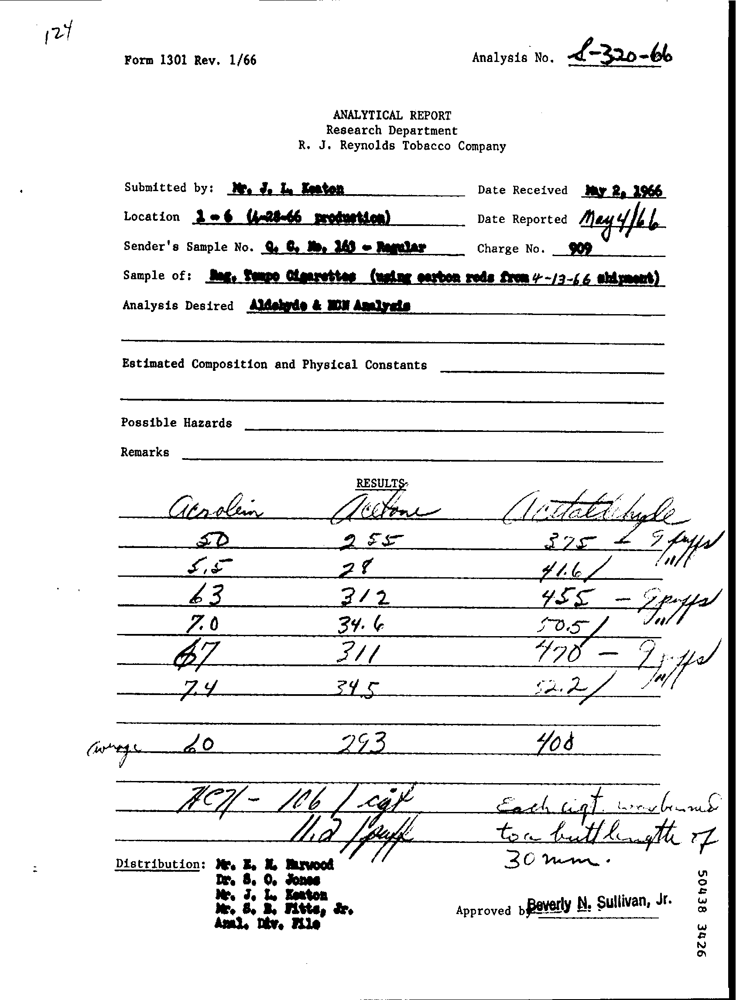 124
Form 1301 Rev. 1/66
Analysis No. S-320-66
ANALYTICAL REPORT
Research Department
R. J. Reynolds Tobacco Company
Submitted by: Mr. J. L. Keaton
Date Received May 2, 1966
Location 1 - 6 (4-28-66 production)
Date Reported May 4/66
Sender's Sample No. Q. C. No. 163 - Regular
Charge No. 909
Sample of: Reg. Tempo Cigarettes (using carbon rods from 4-13-66 shipment)
Analysis Desired Aldehyde & HCN Analysis
Estimated Composition and Physical Constants
Possible Hazards
Remarks
RESULTS
Acrolein Acetone Acetaldehyde
50 255 375 - 9 puffs
5.5 28 41.6/ puff
63 312 455 - 9 puffs
7.0 34.6 50.5/ puff
67 311 470 - 9 puffs
7.4 34.5 52.2/ puff
Average 60 293
HCN - 106 / cigt
11.2 / puff
Each cigt. was burned
to a butt length of
30 mm.
Distribution: Mr. E. H. Harwood
Dr. S. O. Jones
Mr. J. L. Keaton
Mr. S. B. Fitts, Jr.
Anal. Div. File
Approved by Beverly N. Sullivan, Jr.
50438 3426